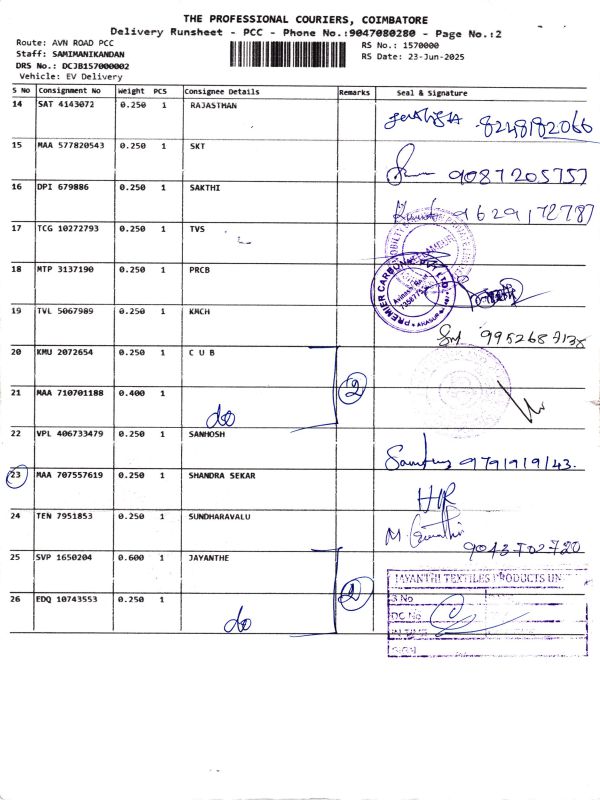 THE PROFESSIONAL COURIERS, COIMBATORE
Delivery Runsheet - PCC - Phone No.:9047080280 - Page No.:2
Route: AVN ROAD PCC
RS No.: 1570000
Staff: SAMIMANIKANDAN
RS Date: 23-Jun-2025
DRS No.: DCJB157000002
Vehicle: EV Delivery
S No Consignment No Weight PCS Consignee Details Remarks Seal & Signature
14 SAT 4143072 0.250 1 RAJASTMAN 8248182066
15 MAA 577820543 0.250 1 SKT 9087205757
16 DPI 679886 0.250 1 SAKTHI 9629172787
17 TCG 10272793 0.250 1 TVS
18 MTP 3137190 0.250 1 PRCB PREMIER CARBON
19 TVL 5067989 0.250 1 KMCH
20 KMU 2072654 0.250 1 C U B
21 MAA 710701188 0.400 1 do 2
22 VPL 406733479 0.250 1 SANHOSH 9791919143.
23 MAA 707557619 0.250 1 SHANDRA SEKAR
24 TEN 7951853 0.250 1 SUNDHARAVALU 9043702720
25 SVP 1650204 0.600 1 JAYANTHE
26 EDQ 10743553 0.250 1 do 2
JAYANTHI TEXTILES PRODUCTS UN
S No
DC No
IN TIME
SIGN